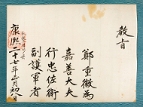 教旨
鄭重徽為
嘉善大夫
行忠佐衛
副護軍者
康熙二十七年十二月初八日